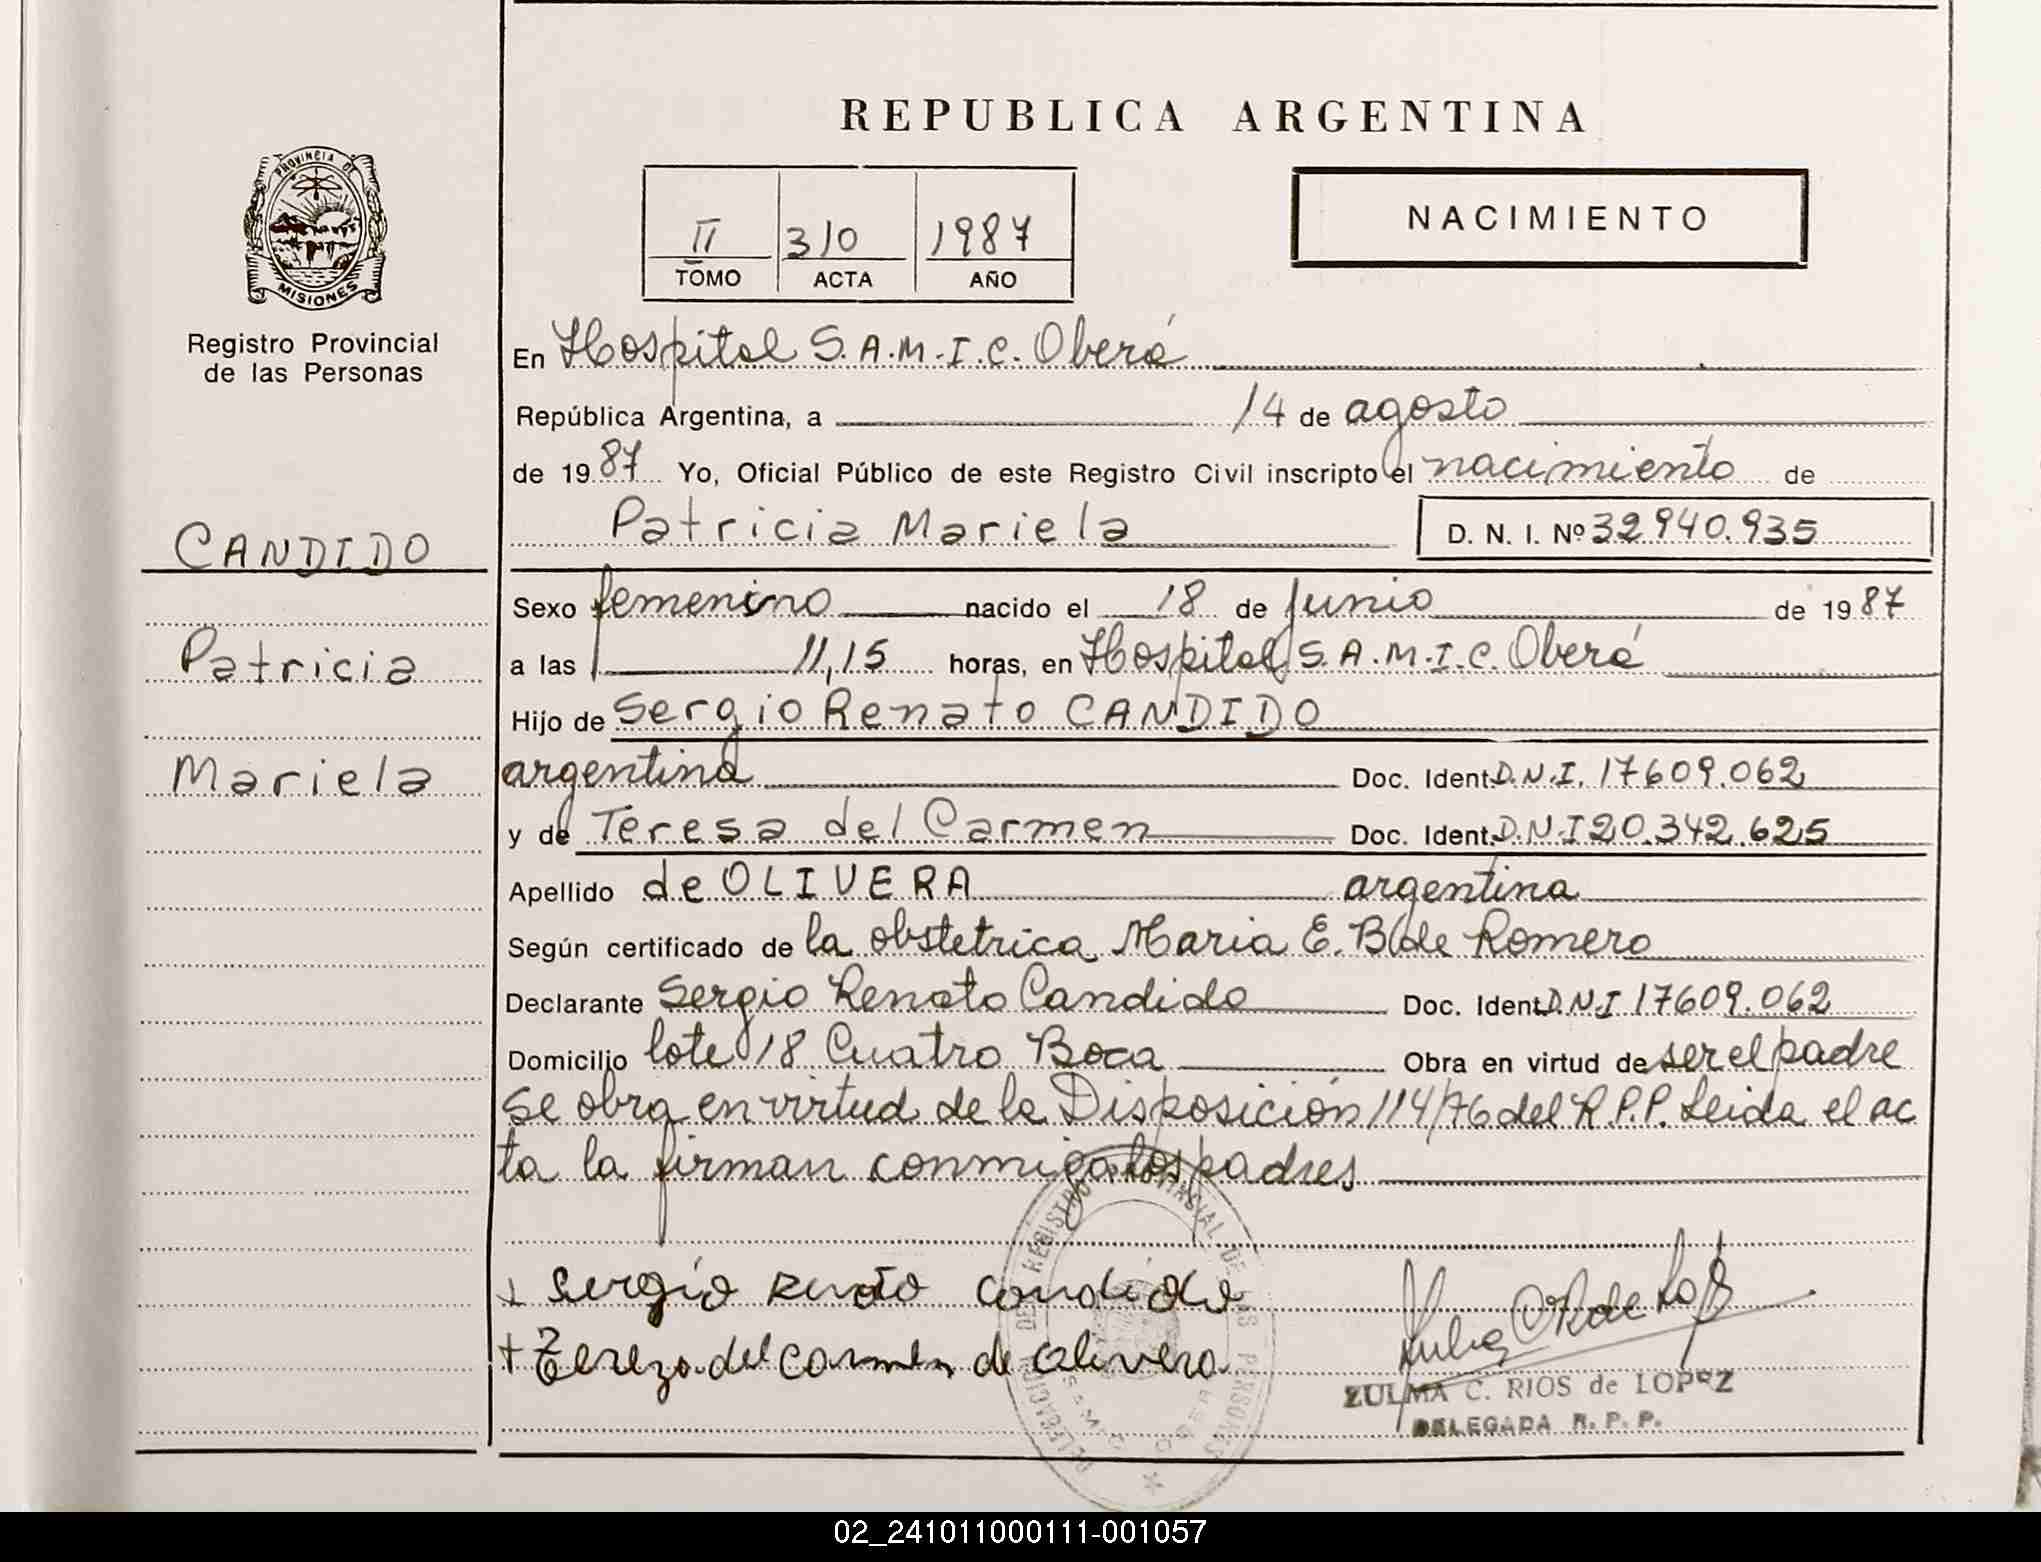 REPUBLICA ARGENTINA
PROVINCIA DE
MISIONES
Registro Provincial
de las Personas
II 310 1987
TOMO ACTA AÑO
NACIMIENTO
En Hospital S.A.M.I.C. Oberá
República Argentina, a 14 de agosto
de 1987 Yo, Oficial Público de este Registro Civil inscripto el nacimiento de
Patricia Mariela D. N. I. Nº 32940.935
CANDIDO
Patricia
Mariela
Sexo femenino nacido el 18 de junio de 1987
a las 11,15 horas, en Hospital S.A.M.I.C. Oberá
Hijo de Sergio Renato CANDIDO
argentina Doc. Ident. D.N.I. 17609.062
y de Teresa del Carmen Doc. Ident. D.N.I 20.342.625
Apellido de OLIVERA argentina
Según certificado de la obstetrica Maria E. B de Romero
Declarante Sergio Renato Candido Doc. Ident. D.N.I 17609.062
Domicilio lote 18 Cuatro Boca Obra en virtud de ser el padre
se obra en virtud de la Disposición 114/76 del R.P.P. Leida el ac
ta la firman conmigo los padres
Sergio Renato Candido
Tereza del Carmen de Olivera
ZULMA C. RIOS de LOPEZ
DELEGADA R. P. P.
DELEGACION DE REGISTRO PROVINCIAL DE LAS PERSONAS
02_241011000111-001057